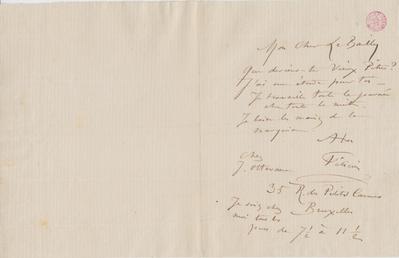 Mon Cher Le Bailly
Que deviens-tu Vieux Pitre?
J'ai une étude pour toi —
Je travaille toute la journée
chez toute la nuit.
Je baise les mains de la
marquise.
À toi
Félicien
Chez
J.
35 R. des Petits Carmes
Bruxelles
Je suis chez
moi tous les
jours de 7½ à 11½